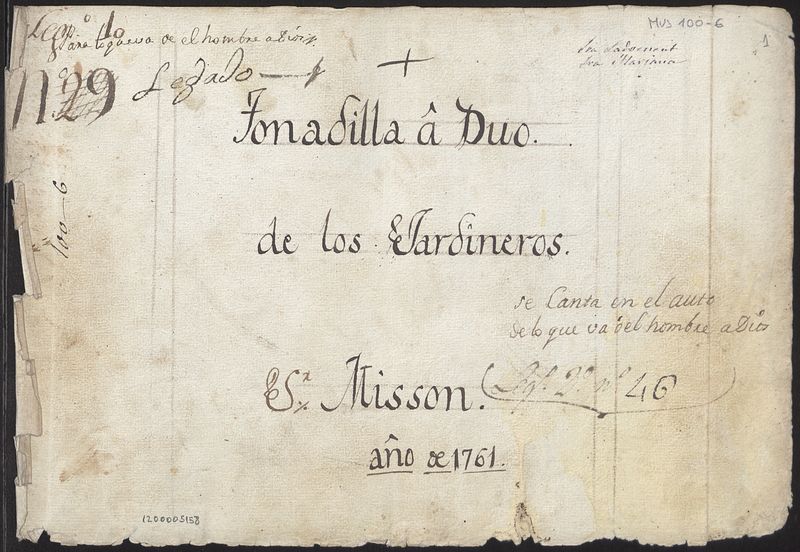 Leg.º 1º
para lo que va de el hombre a Dios
1129
Legado 1
MUS 100-6
1
Sra Ladvenant
Sra Mariana
Tonadilla â Duo.
100-6
de los Jardineros.
se Canta en el auto
de lo que va del hombre a Dios
Sr. Misson.
Leg.º 2º nº 46
año de 1761.
1200005158